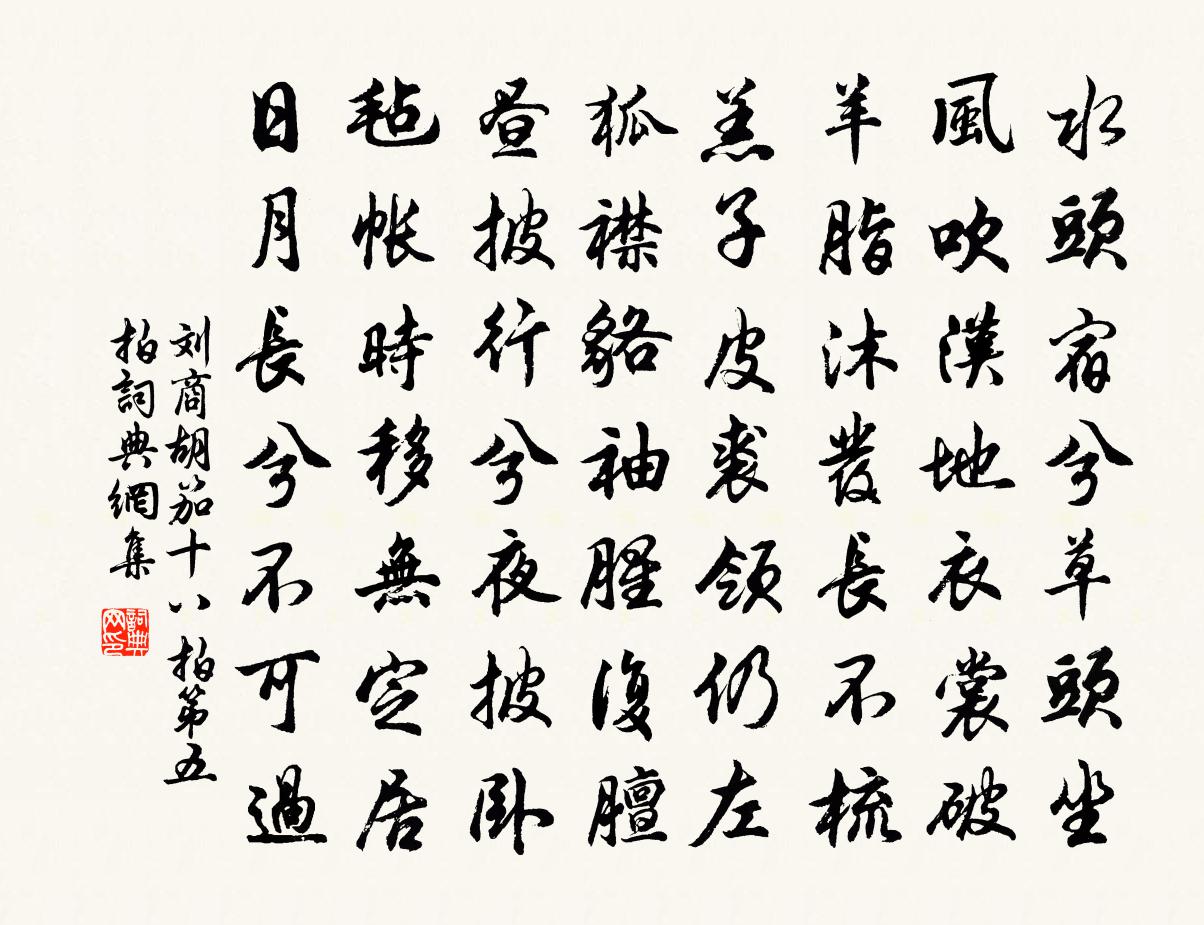 水頭宿兮草頭坐
風吹漢地衣裳破
羊脂沐發長不梳
羔子皮裘領仍左
狐襟貉袖腥復膻
晝披行兮夜披卧
氈帳時移無定居
日月長兮不可過
刘商胡笳十八拍第五
拍詞典網集
詞典网印